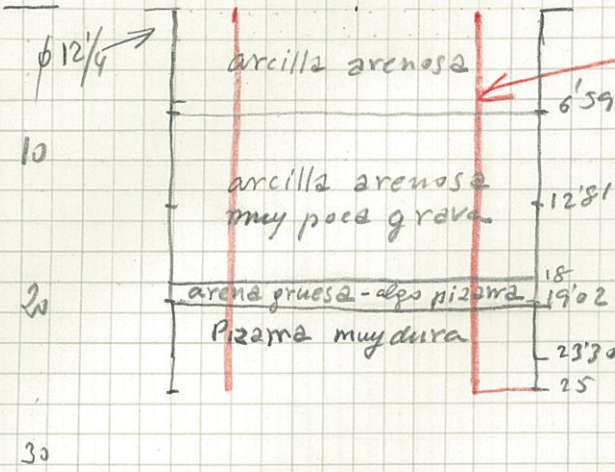 ϕ 12'/4
arcilla arenosa
6'59
10
arcilla arenosa
muy poca grava
12'81
18
20
arena gruesa - algo pizarra
19'02
Pizarra muy dura
23'30
25
30